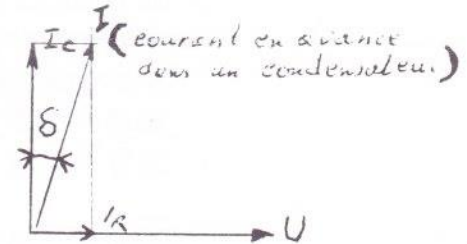 I
Ic (courant en avance
dans un condensateur.)
δ
IR U